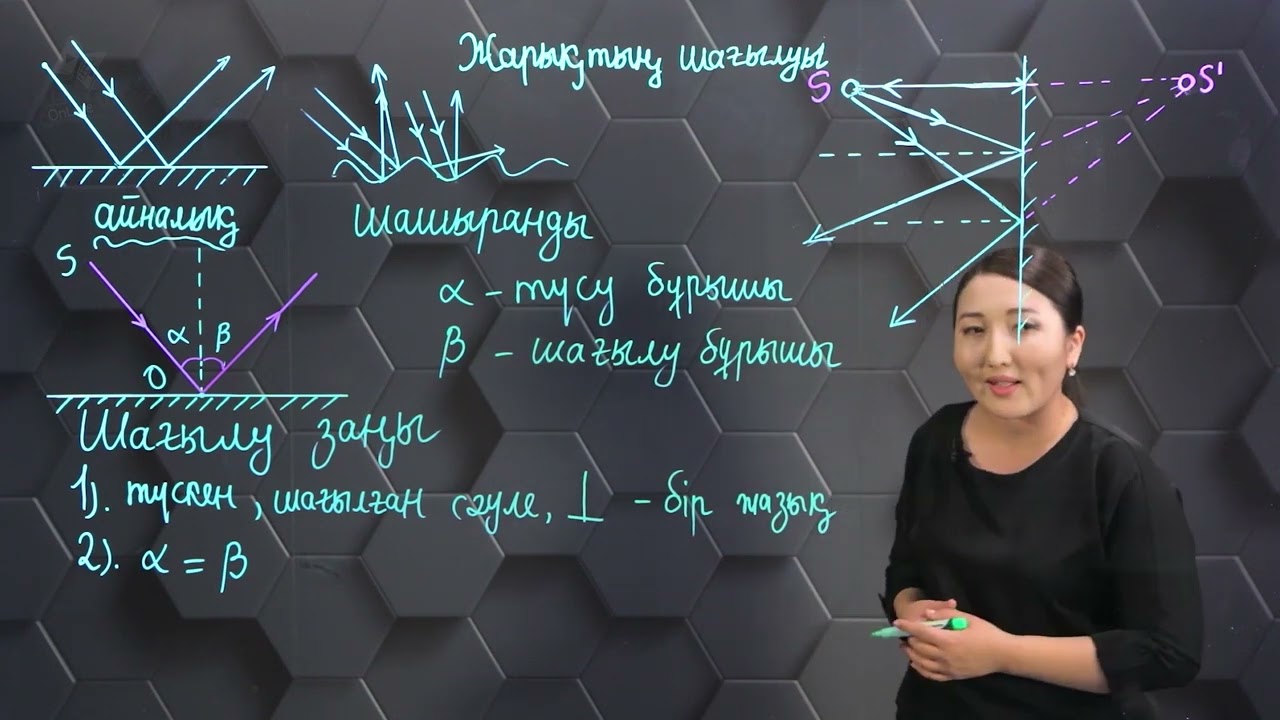 Жарықтың шағылуы
S S'
айналық
шашыранды
S
α β
O
α - түсу бұрышы
β - шағылу бұрышы
Шағылу заңы
1). түскен, шағылған сәуле, ⊥ - бір жазық
2). α = β